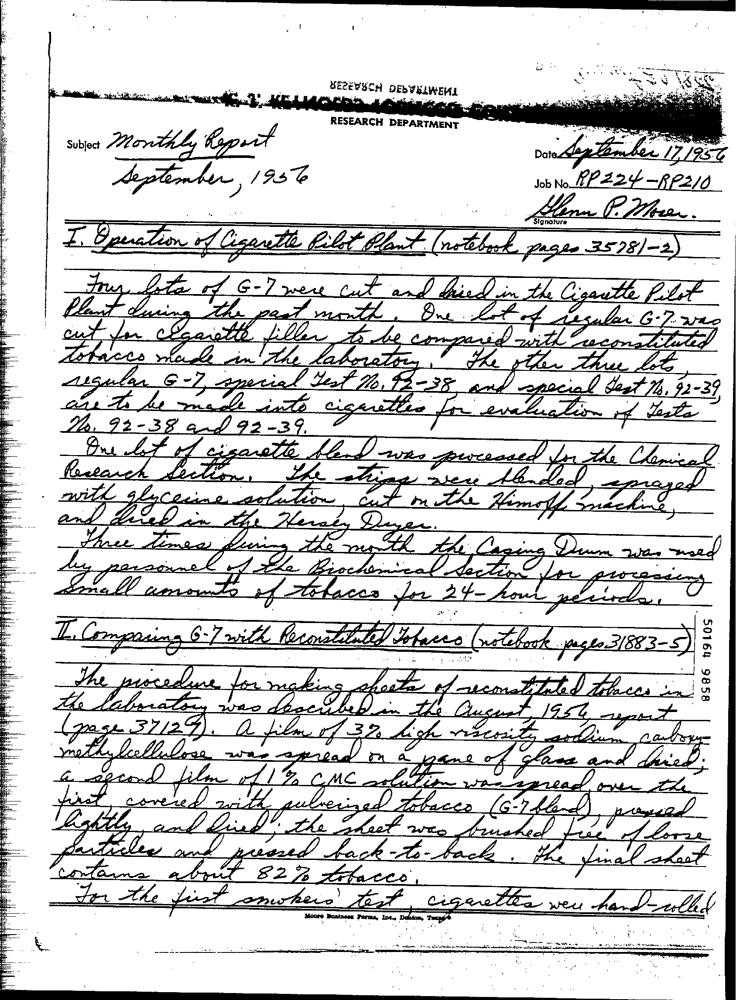 RESEARCH DEPARTMENT
RESEARCH DEPARTMENT
Subject Monthly Report
September, 1956
Date September 17, 1956
Job No. RP224-RP210
Glenn P. Moser.
Signature
I. Operation of Cigarette Pilot Plant (notebook pages 35781-2)
Four lots of G-7 were cut and dried in the Cigarette Pilot
Plant during the past month. One lot of regular G-7 was
cut for cigarette filler to be compared with reconstituted
tobacco made in the laboratory. The other three lots,
regular G-7, special Test No. 92-38 and special Test No. 92-39,
are to be made into cigarettes for evaluation of Tests
No. 92-38 and 92-39.
One lot of cigarette blend was processed for the Chemical
Research Section. The strips were blended, sprayed
with glycerine solution, cut on the Himoff machine,
and dried in the Hersey Dryer.
Three times during the month the Casing Drum was used
by personnel of the Biochemical Section for processing
small amounts of tobacco for 24-hour periods.
II. Comparing G-7 with Reconstituted Tobacco (notebook pages 31883-5)
The procedure for making sheets of reconstituted tobacco in
the laboratory was described in the August, 1956, report
(page 37129). A film of 3% high viscosity sodium carboxy-
methylcellulose was spread on a pane of glass and dried;
a second film of 1% CMC solution was spread over the
first, covered with pulverized tobacco (G-7 blend), pressed
lightly, and dried; the sheet was brushed free of loose
particles and pressed back-to-back. The final sheet
contains about 82% tobacco.
For the first smokers' test, cigarettes were hand-rolled
Moore Business Forms, Inc., Denton, Texas
50164 9858